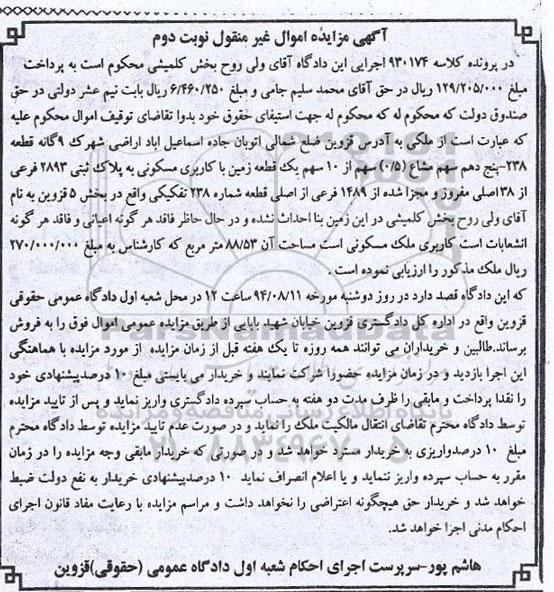 آگهی مزایده اموال غیر منقول نوبت دوم
در پرونده کلاسه ۹۳۰۱۷۴ اجرایی این دادگاه آقای ولی روح بخش کلمیشی محکوم است به پرداخت
مبلغ ۱۲۹/۲۰۵/۰۰۰ ریال در حق آقای محمد سلیم جامی و مبلغ ۶/۴۶۰/۲۵۰ ریال بابت نیم عشر دولتی در حق
صندوق دولت که محکوم له که محکوم له جهت استیفای حقوق خود بدوا تقاضای توقیف اموال محکوم علیه
که عبارت است از ملکی به آدرس قزوین ضلع شمالی اتوبان جاده اسماعیل اباد اراضی شهرک ۹گانه قطعه
۲۳۸-پنج دهم سهم مشاع (۰/۵) سهم از ۱۰ سهم یک قطعه زمین با کاربری مسکونی به پلاک ثبتی ۲۸۹۳ فرعی
از ۳۸اصلی مفروز و مجزا شده از ۱۴۸۹ فرعی از اصلی قطعه شماره ۲۳۸ تفکیکی واقع در بخش ۵ قزوین به نام
آقای ولی روح بخش کلمیشی در این زمین بنا احداث نشده و در حال حاظر فاقد هر گونه اعیانی و فاقد هر گونه
انشعابات است کاربری ملک مسکونی است مساحت آن ۸۸/۵۳ متر مربع که کارشناس به مبلغ ۲۷۰/۰۰۰/۰۰۰
ریال ملک مذکور را ارزیابی نموده است .
که این دادگاه قصد دارد در روز دوشنبه مورخه ۹۴/۰۸/۱۱ ساعت ۱۲ در محل شعبه اول دادگاه عمومی حقوقی
قزوین واقع در اداره کل دادگستری قزوین خیابان شهید بابایی از طریق مزایده عمومی اموال فوق را به فروش
برساند.طالبین و خریداران می توانند همه روزه تا یک هفته قبل از زمان مزایده از مورد مزایده با هماهنگی
این اجرا بازدید و در زمان مزایده حضورا شرکت نمایند و خریدار می بایستی مبلغ ۱۰ درصدپیشنهادی خود
را نقدا پرداخت و مابقی را ظرف مدت دو هفته به حساب سپرده دادگستری واریز نماید و پس از تایید مزایده
توسط دادگاه محترم تقاضای انتقال مالکیت ملک را نماید و در صورت عدم تایید مزایده توسط دادگاه محترم
مبلغ ۱۰ درصدواریزی به خریدار مسترد خواهد شد و در صورتی که خریدار مابقی وجه مزایده را در زمان
مقرر به حساب سپرده واریز ننماید و یا اعلام انصراف نماید ۱۰ درصدپیشنهادی خریدار به نفع دولت ضبط
خواهد شد و خریدار حق هیچگونه اعتراضی را نخواهد داشت و مراسم مزایده با رعایت مفاد قانون اجرای
احکام مدنی اجرا خواهد شد.
هاشم پور-سرپرست اجرای احکام شعبه اول دادگاه عمومی (حقوقی)قزوین
ParsNamadData
پایگاه اطلاع رسانی مناقصه و مزایده
۰۲۱-۸۸۳۴۹۶۷۰-۵